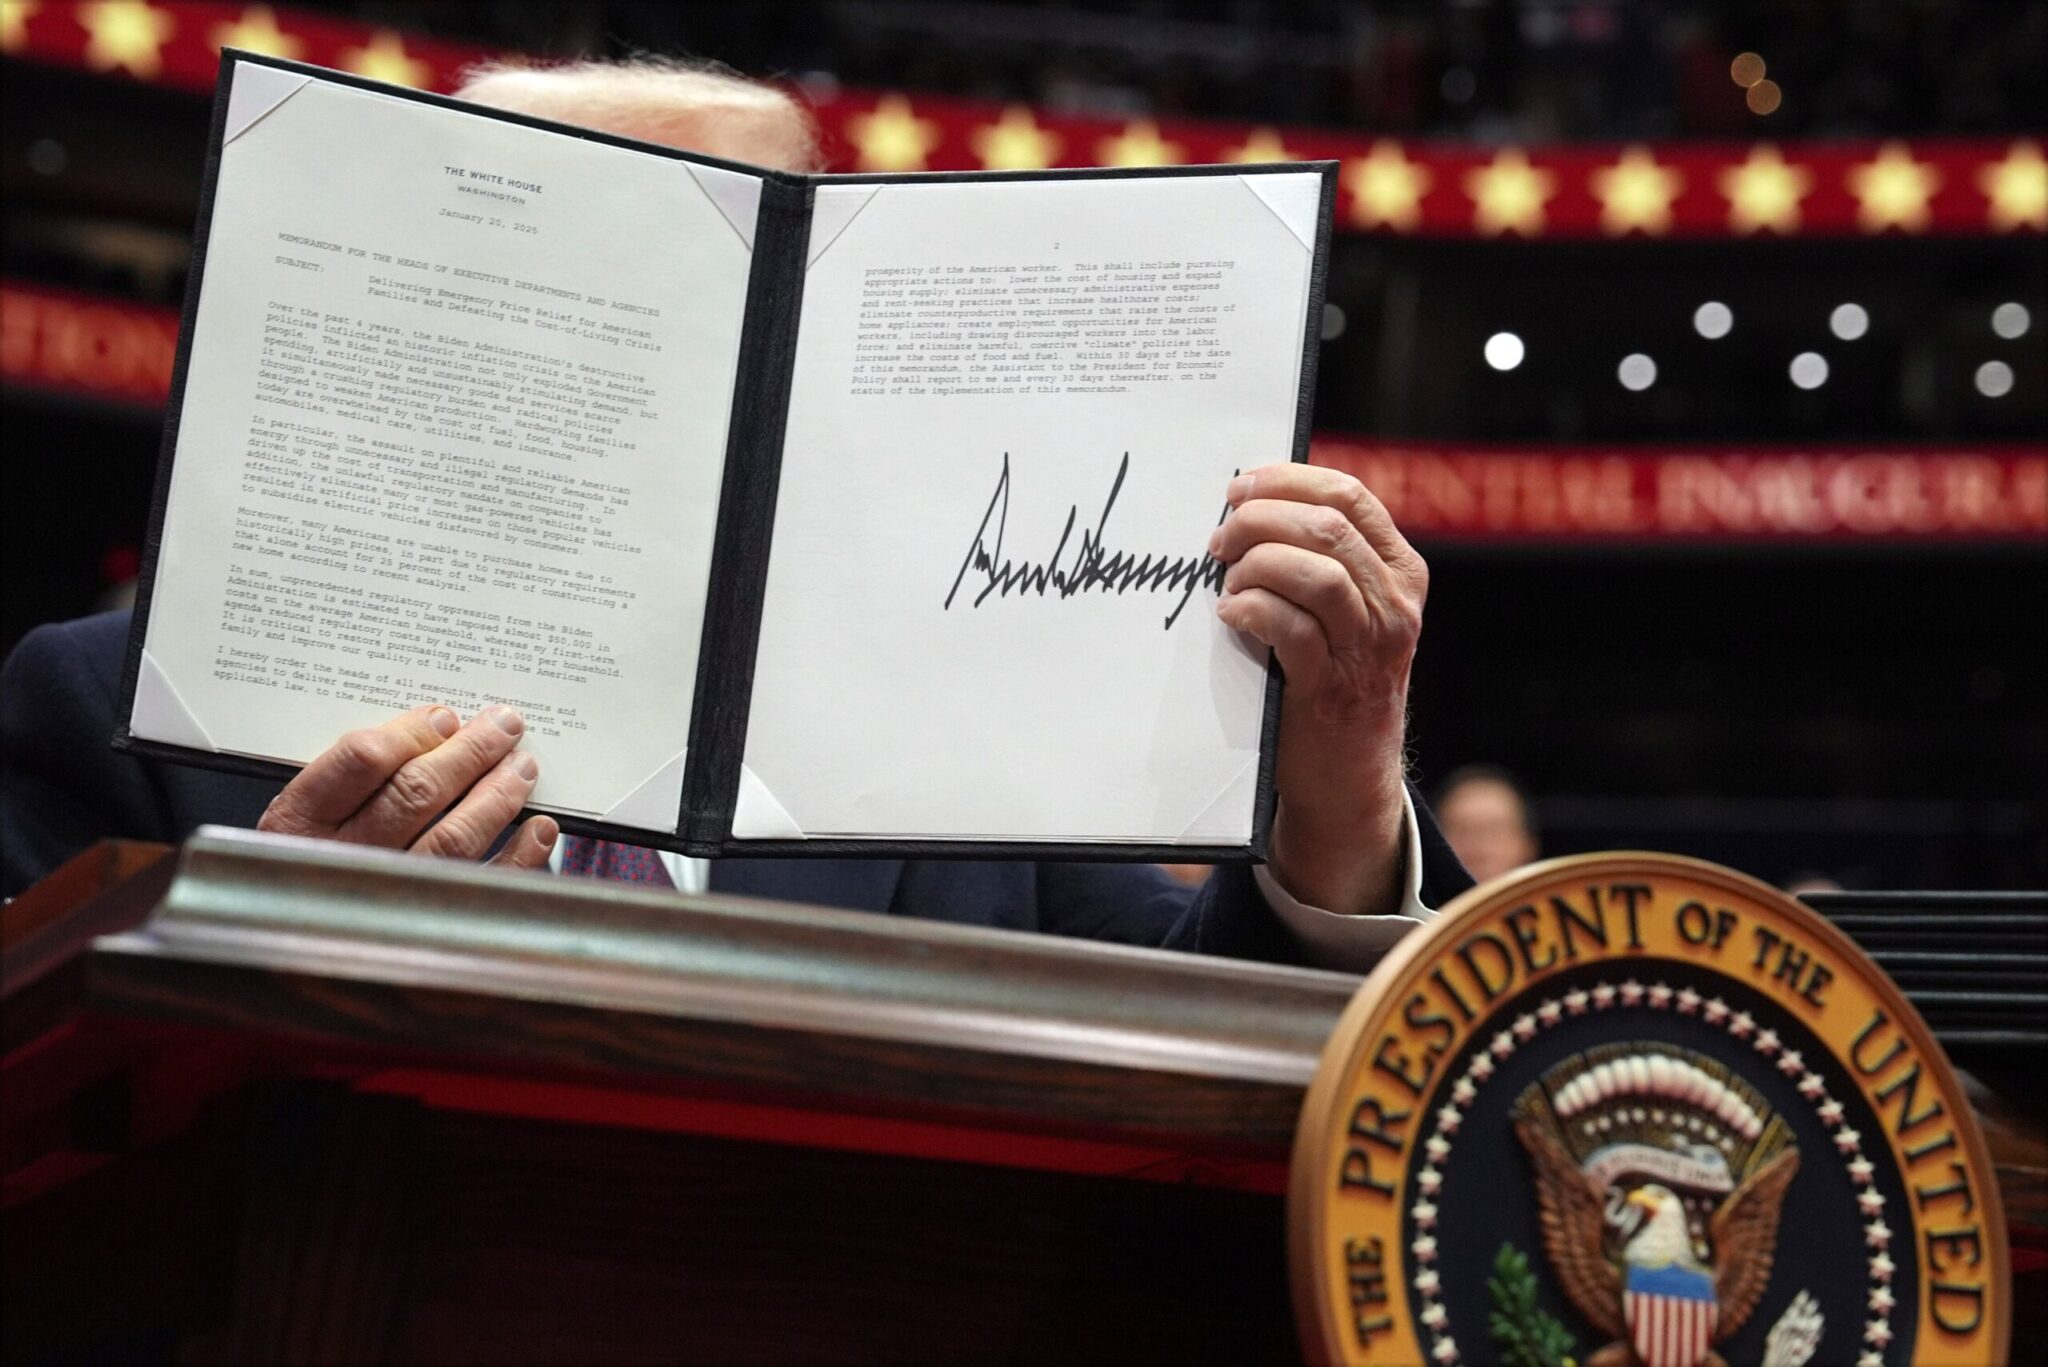 THE WHITE HOUSE
WASHINGTON
January 20, 2025
MEMORANDUM FOR THE HEADS OF EXECUTIVE DEPARTMENTS AND AGENCIES
SUBJECT:
Delivering Emergency Price Relief for American
Families and Defeating the Cost-of-Living Crisis
Over the past 4 years, the Biden Administration's destructive
policies inflicted an historic inflation crisis on the American
people. The Biden Administration not only exploded Government
spending, artificially and unsustainably stimulating demand, but
it simultaneously made necessary goods and services scarce
through a crushing regulatory burden and radical policies
designed to weaken American production. Hardworking families
today are overwhelmed by the cost of fuel, food, housing,
automobiles, medical care, utilities, and insurance.
In particular, the assault on plentiful and reliable American
energy through unnecessary and illegal regulatory demands has
driven up the cost of transportation and manufacturing. In
addition, the unlawful regulatory mandate on companies to
effectively eliminate many or most gas-powered vehicles has
resulted in artificial price increases on those popular vehicles
to subsidize electric vehicles disfavored by consumers.
Moreover, many Americans are unable to purchase homes due to
historically high prices, in part due to regulatory requirements
that alone account for 25 percent of the cost of constructing a
new home according to recent analysis.
In sum, unprecedented regulatory oppression from the Biden
Administration is estimated to have imposed almost $50,000 in
costs on the average American household, whereas my first-term
agenda reduced regulatory costs by almost $11,000 per household.
It is critical to restore purchasing power to the American
family and improve our quality of life.
I hereby order the heads of all executive departments and
agencies to deliver emergency price relief, istent with
applicable law, to the American an se the
2
prosperity of the American worker. This shall include pursuing
appropriate actions to: lower the cost of housing and expand
housing supply; eliminate unnecessary administrative expenses
and rent-seeking practices that increase healthcare costs;
eliminate counterproductive requirements that raise the costs of
home appliances; create employment opportunities for American
workers, including drawing discouraged workers into the labor
force; and eliminate harmful, coercive "climate" policies that
increase the costs of food and fuel. Within 30 days of the date
of this memorandum, the Assistant to the President for Economic
Policy shall report to me and every 30 days thereafter, on the
status of the implementation of this memorandum.
TION
DENTIAL INAUGURA
THE PRESIDENT OF THE UNITED